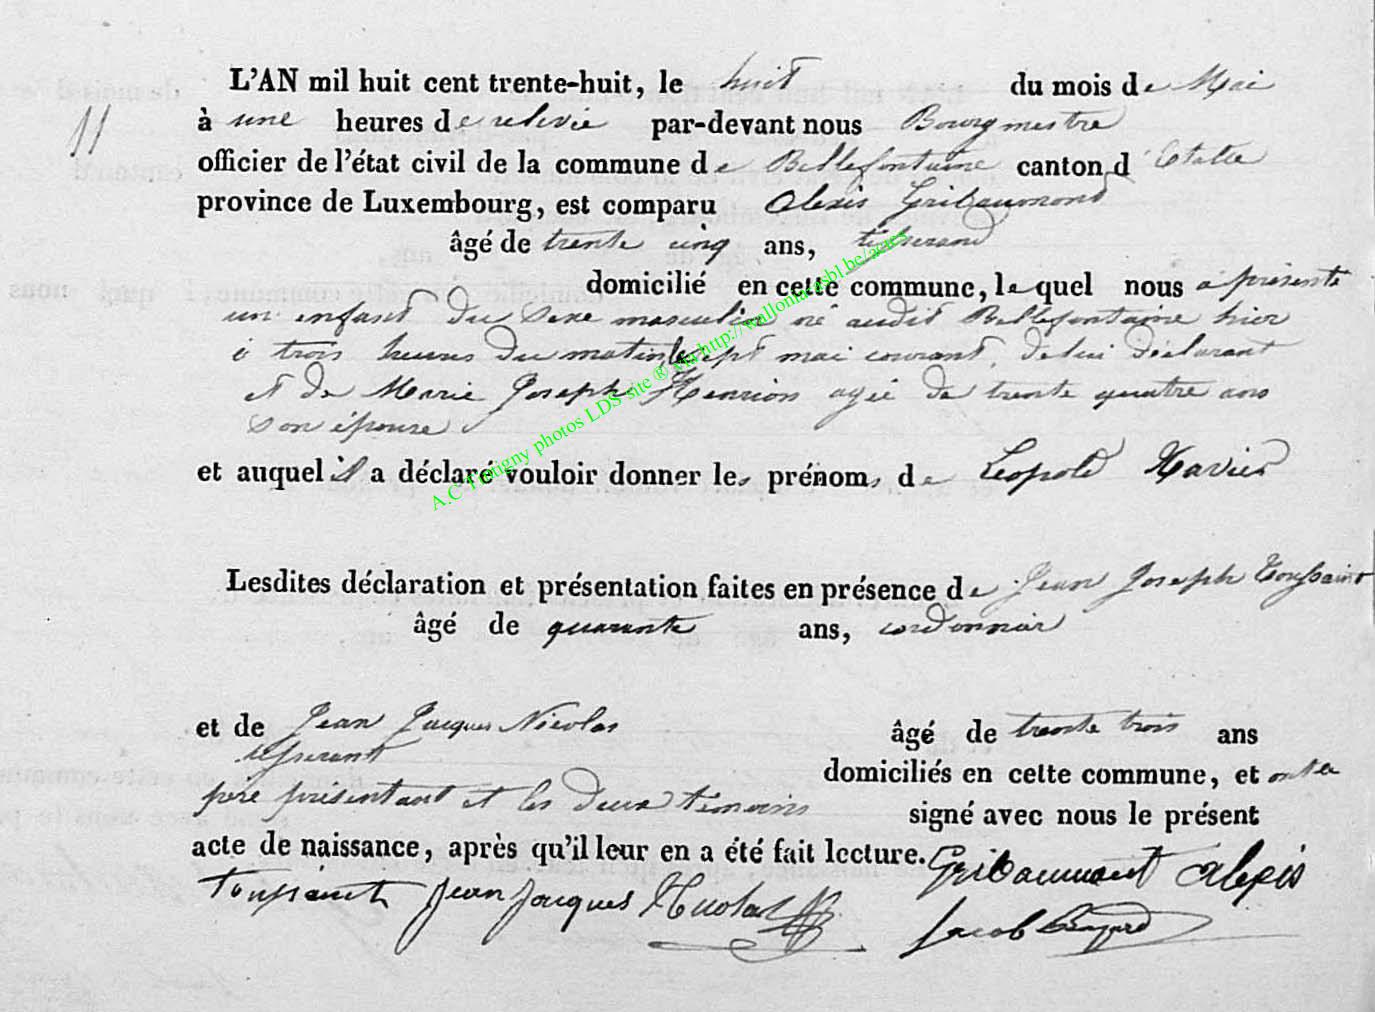 L'AN mil huit cent trente-huit, le huit du mois de Mai
11
à une heures de relevée par-devant nous Bourgmestre
officier de l'état civil de la commune de Bellefontaine canton d'Etalle
province de Luxembourg, est comparu Alexis Gribaumond
âgé de trente cinq ans, tisserand
domicilié en cette commune, le quel nous a présenté
un enfant du sexe masculin né audit Bellefontaine hier
à trois heures du matin le sept mai courant, de lui déclarant
et de Marie Joseph Henrion agée de trente quatre ans
son épouse
et auquel il a déclaré vouloir donner les prénoms de Leopold Xavier
A.C Tintigny photos LDS site ® via http://walloniaasbl.be/actes
Lesdites déclaration et présentation faites en présence de Jean Joseph Toussaint
âgé de quarante ans, cordonnier
et de Jean Jacques Nicolas âgé de trente trois ans
tisserant
domiciliés en cette commune, et ont le
père présentant et les deux témoins signé avec nous le présent
acte de naissance, après qu'il leur en a été fait lecture. Gribaumont alexis
toussaint Jean Jacques Nicolas Jacob